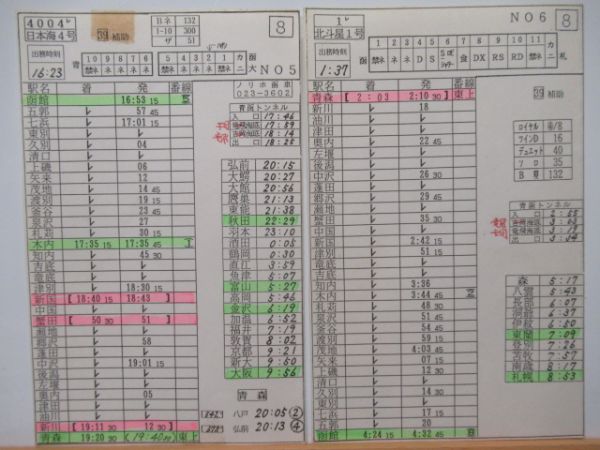 4004レ
日本海4号
39 補助
Bネ 132
1-10 300
ザ 51
8
出務時刻
16:23
10 9 8 7 6 5 4 3 2 1 カ
NO5
駅名 着 発 番線
函館 16:53 15
五郭 レ 57 45
七浜 レ 17:01 15
東別 レ
久別 レ 04
清口 レ
上磯 レ 06
矢来 レ 12
茂地 レ 14 45
渡別 レ 19 15
釜谷 レ 23 45
泉沢 レ 27
札苅 レ 30 15
木内 17:35 15 17:35 45
知内 レ 45 30
吉底 レ
竜底 レ
津別 レ 18:30 15
新国 [ 18:40 15 18:43 ]
中国 レ
蟹田 [ 50 30 51 ]
瀬地 レ
郷沢 レ 58
蓬田 レ
中沢 レ 19:01 15
後潟 レ
左堰 レ
奥内 レ 05
津田 レ
油川 レ
新川 [ 19:11 30 12 30 ]
青森 19:20 30 (19:40発) 東上
ノリホ函車
023-0602
青函トンネル
入口 17:46
竜飛海底 17:59
吉岡海底 18:14
出口 18:25
弘前 20:15
大鰐 20:27
大館 20:56
鷹巣 21:13
東能 21:38
秋田 22:29
羽本 23:10
酒田 0:05
鶴岡 0:30
直江 3:59
魚津 5:07
富山 5:27
高岡 5:46
金沢 6:19
加温 6:52
福井 7:19
敦賀 8:02
京都 9:21
新大 9:50
大阪 9:56
青森
八戸 20:05 ②
弘前 20:13 ④
1レ
北斗星1号
NO6
8
出務時刻
1:37
1 2 3 4 5 6 7 8 9 10 11 カ
札
D DS DX RS RD
駅名 着 発 番線
青森 [ 2:03 2:10 30 ] 東上
新川 レ 18
油川 レ
津田 レ
奥内 レ 22 45
左堰 レ
後潟 レ
中沢 レ 26 30
蓬田 レ
郷沢 レ 29
瀬地 レ
蟹田 レ 35 30
中国 レ
新国 レ 2:42 15
津別 レ 51 15
竜底 レ
吉底 レ
知内 レ 3:36
木内 レ 3:44 45
札苅 レ 48 30
泉沢 レ 51 30
釜谷 レ 54 30
渡別 レ 59 15
茂地 レ 4:03 45
矢来 レ 07 15
上磯 レ 12 30
清口 レ
久別 レ 14 30
東別 レ
七浜 レ 17 15
五郭 レ 20
函館 4:24 15 4:32 45
39 補助
ロイヤル 車/B
ツインD 16
デュエット 40
ソロ 35
B寝 132
青函トンネル
入口 2:55
出口 3:34
森 5:17
八雲 5:43
長部 6:07
洞爺 6:37
伊紋 6:50
東蘭 7:09
登別 7:26
苫牧 7:57
南歳 8:17
札幌 8:53